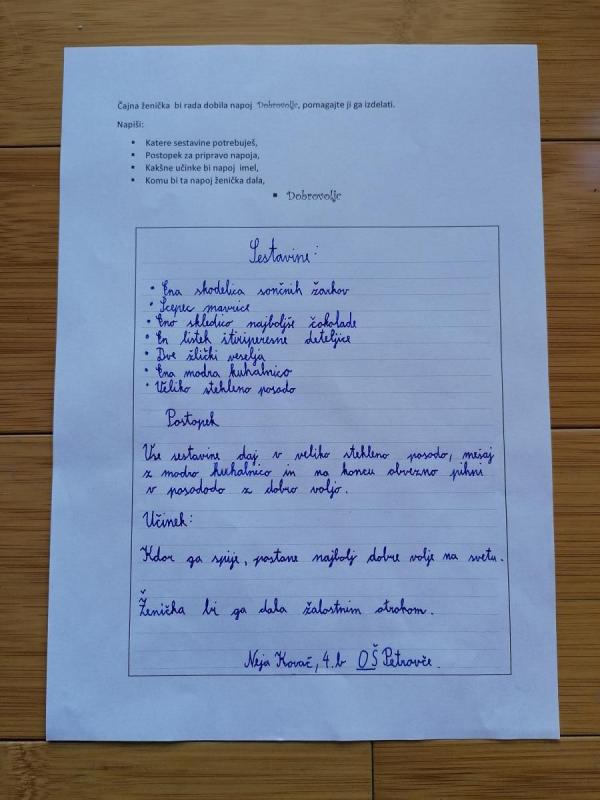 Čajna ženička bi rada dobila napoj Dobrovoljc, pomagajte ji ga izdelati.
Napiši:
▪ Katere sestavine potrebuješ,
▪ Postopek za pripravo napoja,
▪ Kakšne učinke bi napoj imel,
▪ Komu bi ta napoj ženička dala,
▪ Dobrovoljc
Sestavine:
• Ena skodelica sončnih žarkov
• Ščepec mavrice
• Eno skledico najboljše čokolade
• En listek štiriperesne deteljice
• Dve žlički veselja
• Ena modra kuhalnico
• Veliko stekleno posodo
Postopek
Vse sestavine daj v veliko stekleno posodo, mešaj
z modro kuhalnico in na koncu obvezno pihni
v posododo z dobro voljo.
Učinek:
Kdor ga spije, postane najbolj dobre volje na svetu.
Ženička bi ga dala žalostnim otrokom.
Neja Kovač, 4.b OŠ Petrovče.